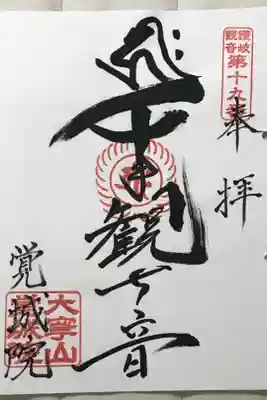 讃岐
観音
第十九番
奉拝
千手観世音
覚城院
大寧山